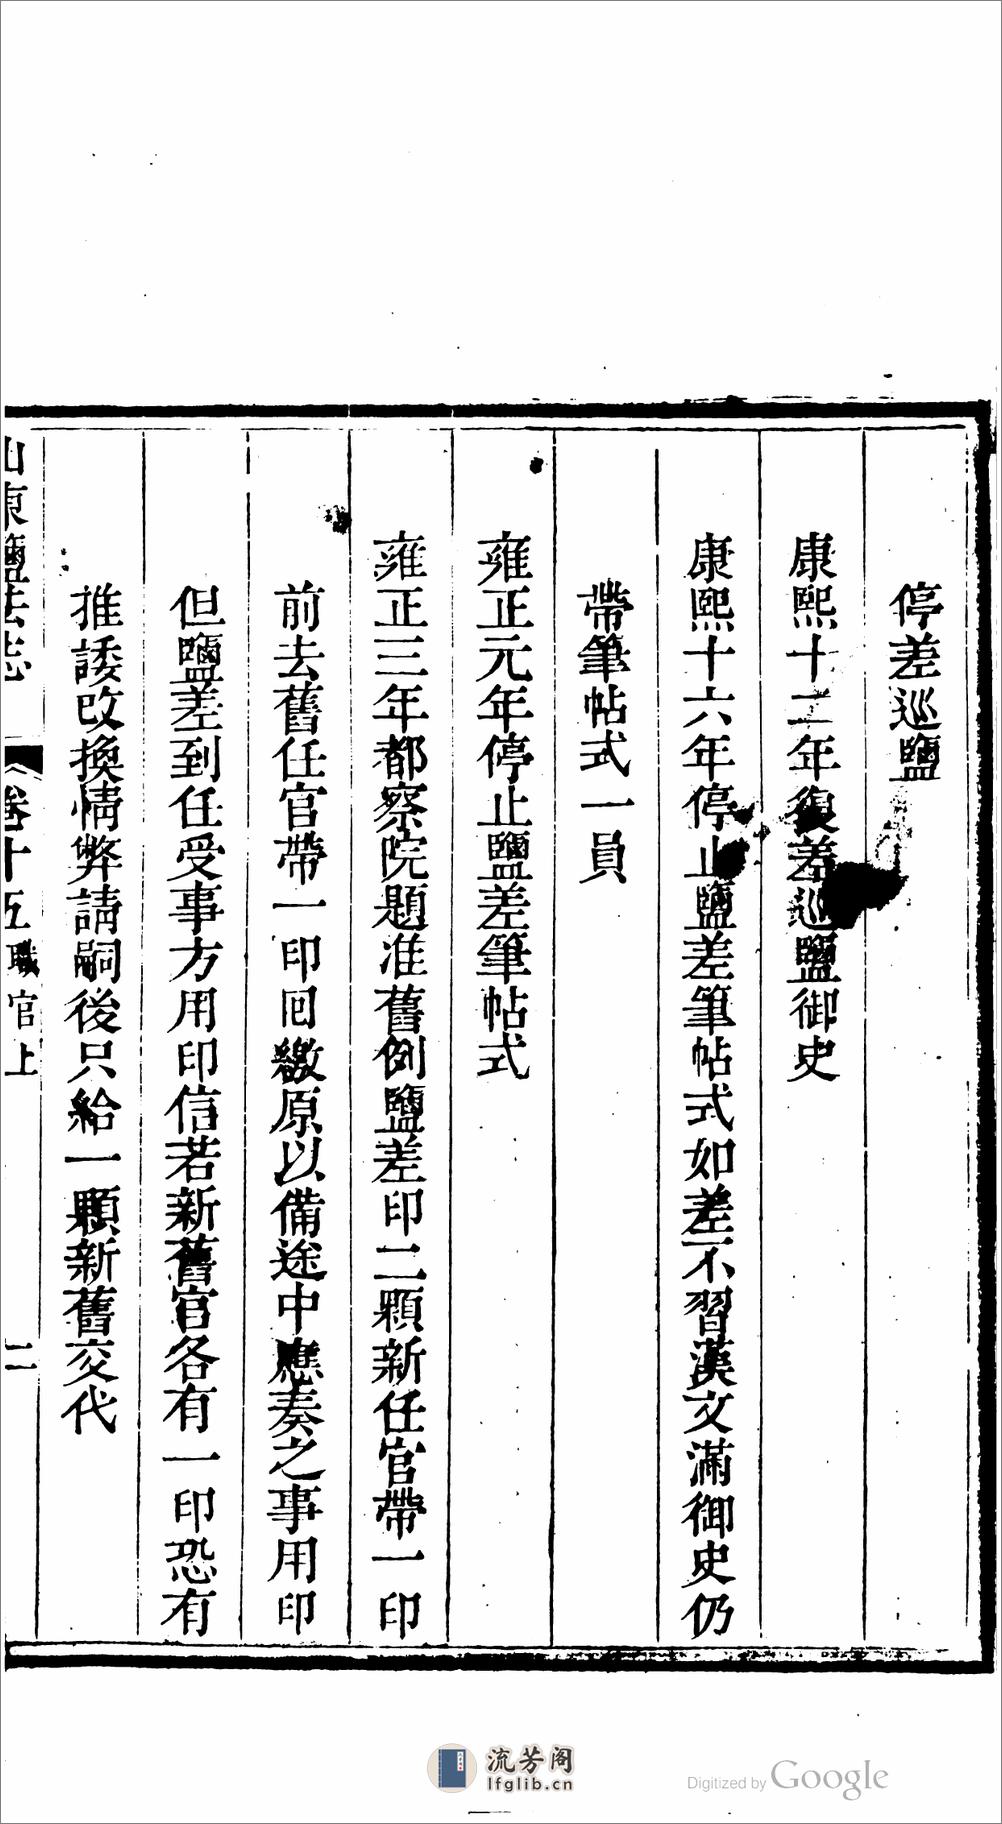 停差巡鹽
康熙十二年復差巡鹽御史
康熙十六年停止鹽差筆帖式如差不習漢文滿御史仍
帶筆帖式一員
雍正元年停止鹽差筆帖式
雍正三年都察院題准舊例鹽差印二顆新任官帶一印
前去舊任官帶一印回繳原以備途中應奏之事用印
但鹽差到任受事方用印信若新舊官各有一印恐有
推諉改換情弊請嗣後只給一顆新舊交代
山東鹽法志 卷十五職官上 二
流芳阁
lfglib.cn
Digitized by Google